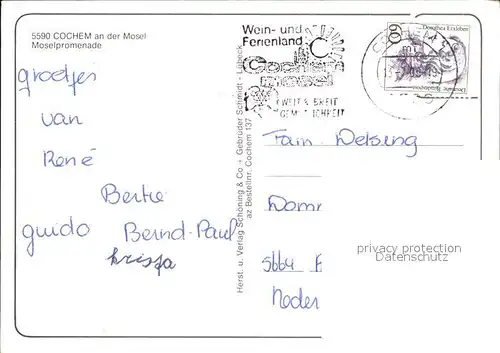 5590 COCHEM an der Mosel
Moselpromenade
groetjes
van
René
Bertie
guido Bernd-Paul
Herst. u. Verlag Schöning & Co + Gebrüder Schmidt - Lübeck
az Bestellnr. Cochem 137
Wein- und
Ferienland
Cochem
mosel
WELT & BREIT
GEM TLICHKEIT
COCHEM
60
Dorothea Erxleben
Deutsche Bundespost
Fam. Delsing
Domm
5664
Neder
privacy protection
Datenschutz